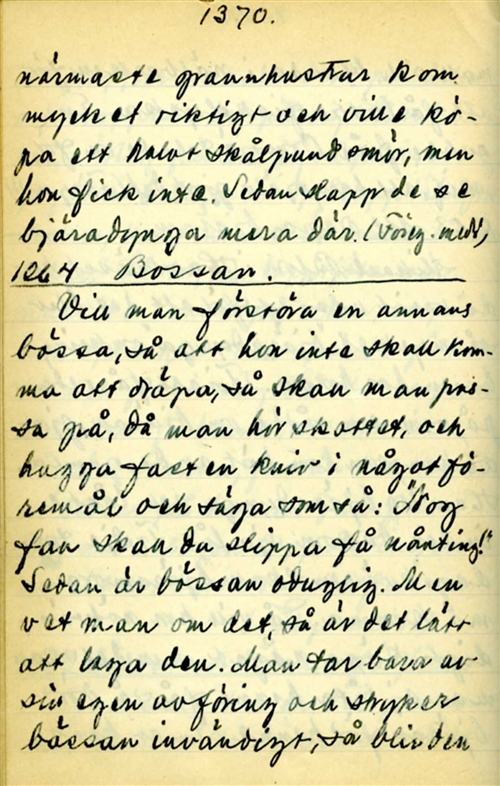 1370.
närmaste grannhustrur kom
mycket riktigt och ville kö-
pa ett halvt skålpund smör, men
hon fick inte. Sedan slapp de se
bjäradynga mera där. (Föreg. medd,
1264 Bössan.
Vill man förstöra en annans
bössa, så att hon inte skall kom-
ma att dräpa, så skall man pas-
sa på, då man hör skottet, och
hugga fast en kniv i något fö-
remål och säga som så: "Nog
fan skall du slippa få nånting!"
Sedan är bössan oduglig. Men
vet man om det, så är det lätt
att laga den. Man tar bara av
sin egen avföring och stryker
bössan invändigt, så blir den